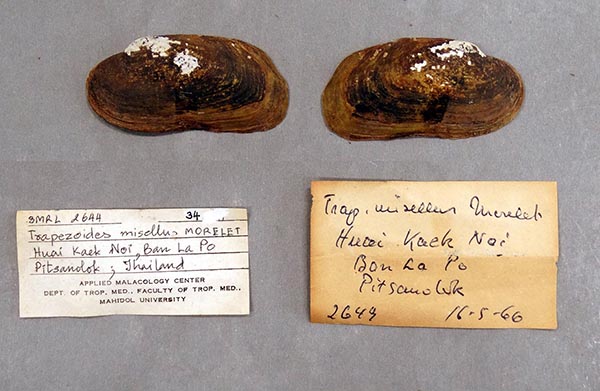 SMRL 2644 34
Trapezoides misellus MORELET
Huai Kaek Noi, Ban La Po
Pitsanolok ; Thailand
APPLIED MALACOLOGY CENTER
DEPT. OF TROP. MED., FACULTY OF TROP. MED.,
MAHIDOL UNIVERSITY
Trap. misellus Morelet
Huai Kaek Noi
Ban La Po
Pitsanolok
2644 16-5-66